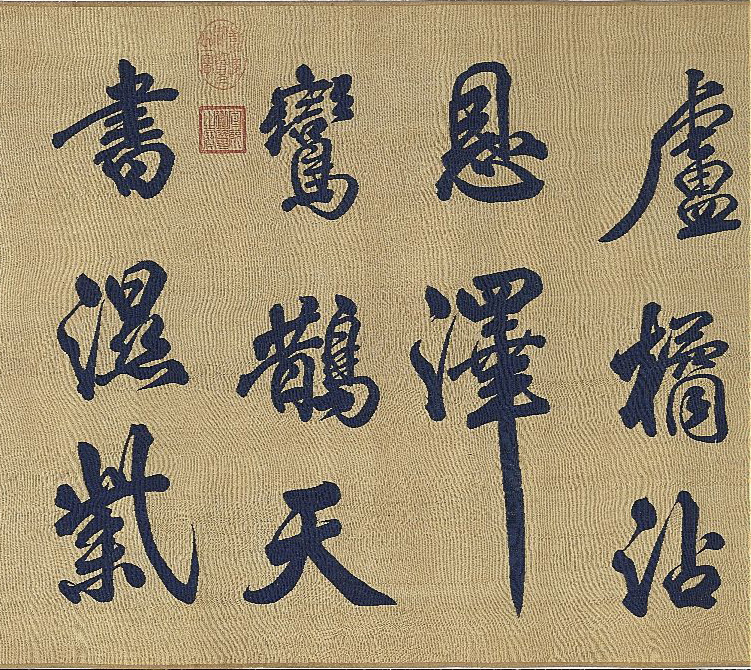 盧橘沾
恩澤
鸞鵲天
書濕紫